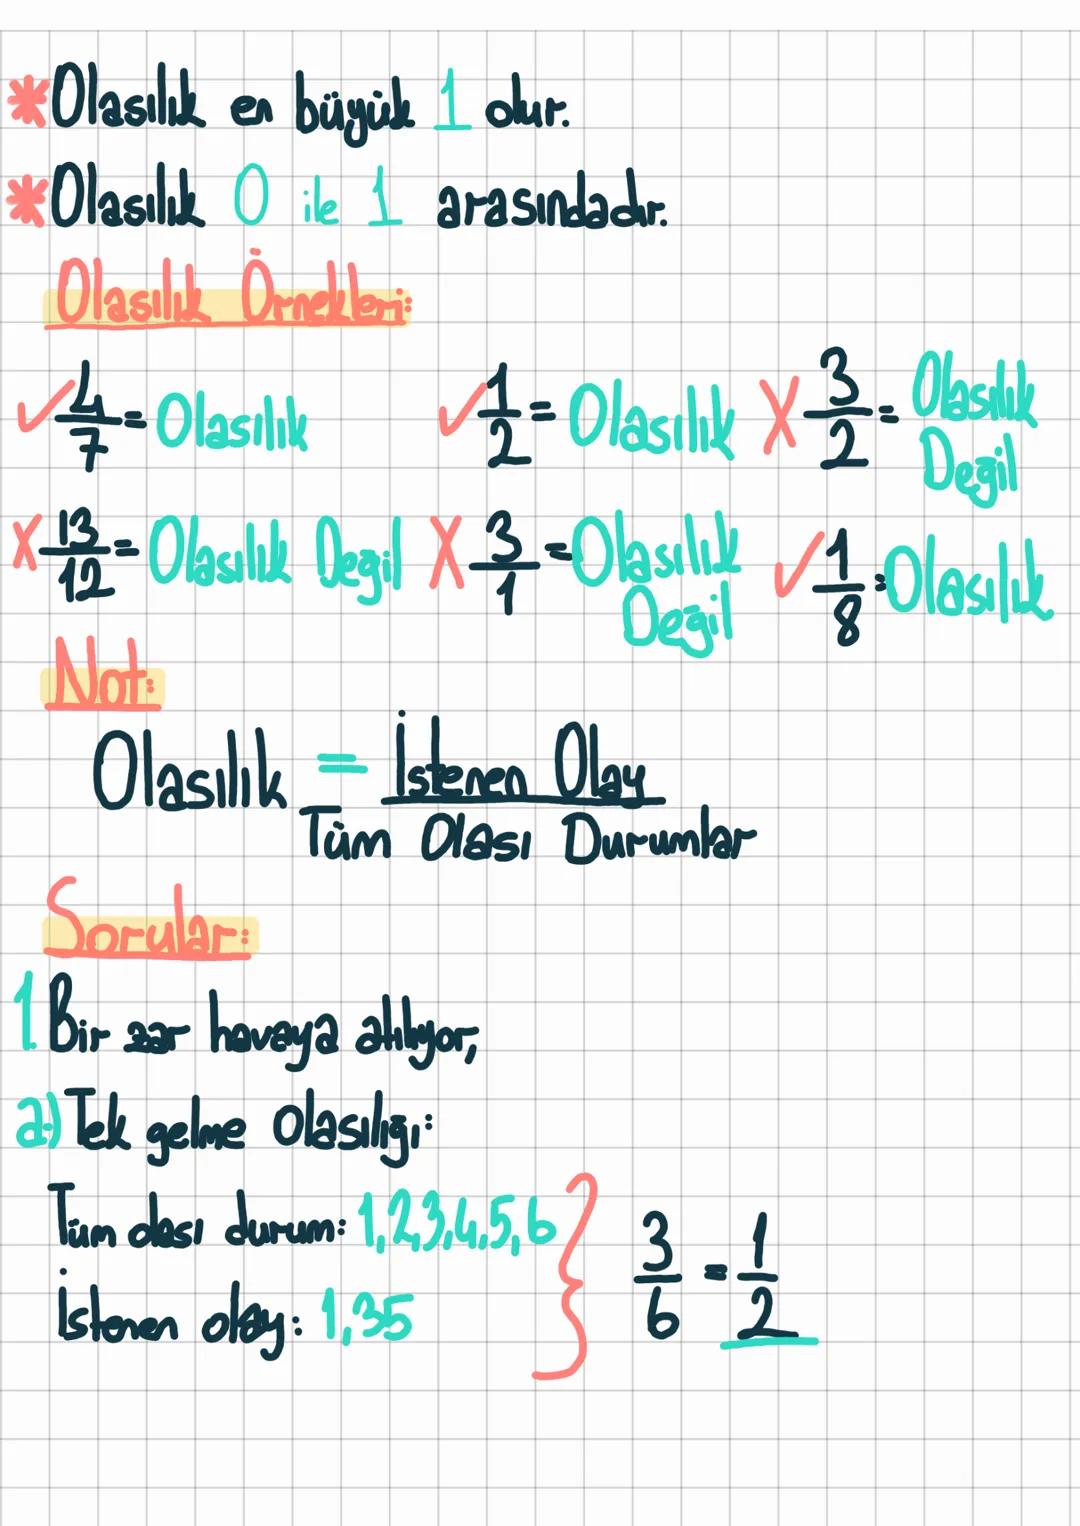 *Olasılık en büyük 1 olur.
*Olasılık 0 ile 1 arasındadır.
Olasılık Örnekleri:
✓ 4/7 = Olasılık ✓ 1/2 = Olasılık X 3/2 = Olasılık Değil
X 13/12 = Olasılık Değil X 3/1 = Olasılık Değil ✓ 1/8 = Olasılık
Not:
Olasılık = İstenen Olay
Tüm Olası Durumlar
Sorular:
1. Bir zar havaya atılıyor,
a) Tek gelme olasılığı:
Tüm olası durum: 1,2,3,4,5,6
İstenen olay: 1,35
3/6 = 1/2